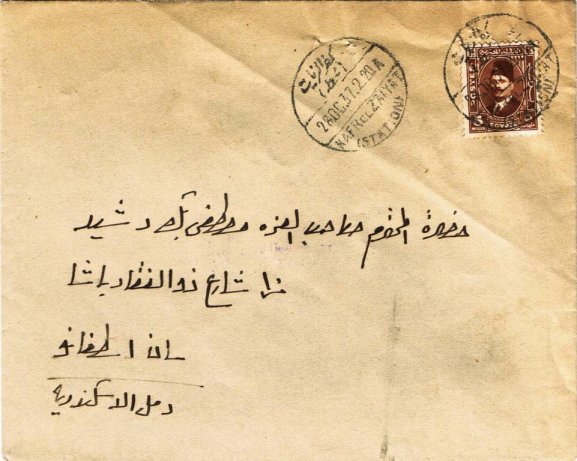 كفر الزيات
28 OC. 37. 2. 20 A
KAFR EL ZAIYAT
(STATION)
POSTES
5
حضرة المحترم صاحب العزه مصطفى بك رشيد
شارع ذو الفقار باشا
سان اسطفانو
رمل الاسكندرية